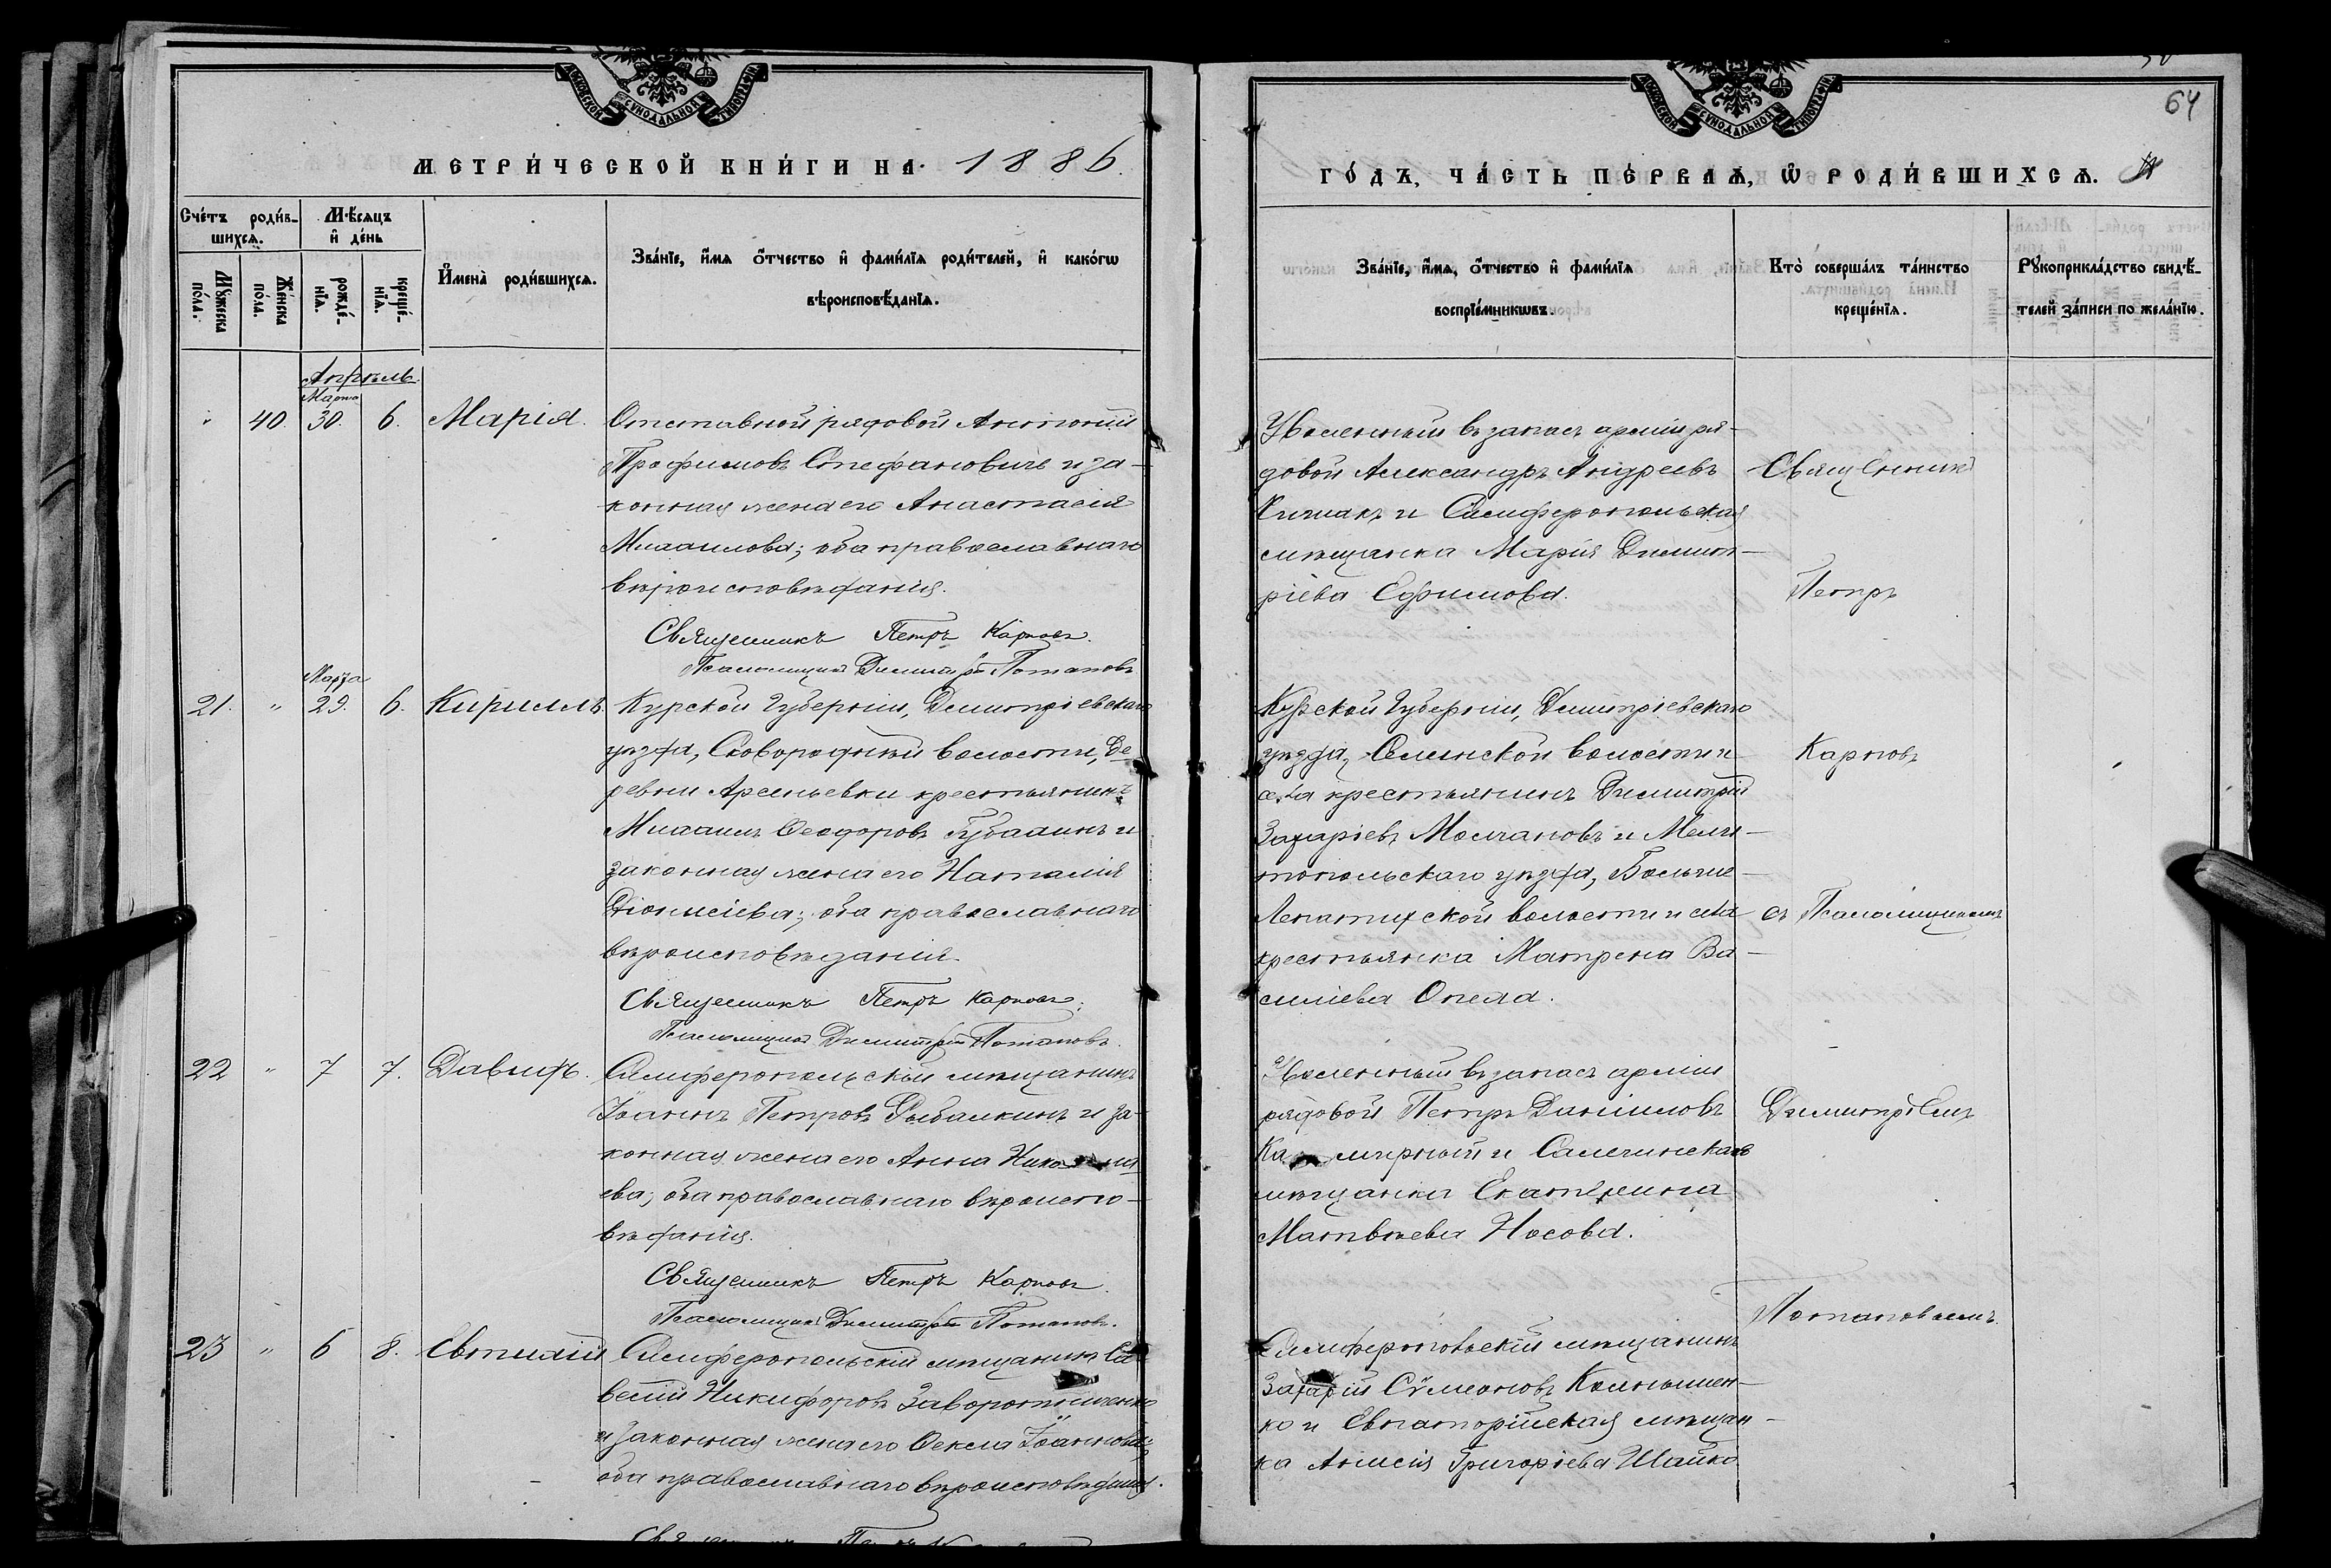 МОСКОВСКОЙ СѴНОДАЛЬНОЙ ТИПОГРАФІИ
МЕТРИ́ЧЕСКОЙ КНИ́ГИ НА 1886.
Сче́тъ роди́в-
шихсѧ.
Мꙋ́жеска
по́ла.
Же́нска
по́ла.
Мѣ́сѧцъ
и҆ де́нь
рожде́-
нїѧ.
креще́-
нїѧ.
И҆мена̀ роди́вшихсѧ.
Зва́нїе, и҆́мѧ ѻ҆́тчество и҆ фами́лїѧ роди́телей, и҆ како́гѡ
вѣроисповѣ́данїѧ.
Апрѣль.
Марта
40. 30. 6. Марія. Отставной рядовой Антоній
Трофимовъ Стефановичъ и за-
конная жена его Анастасія
Михаилова; оба православнаго
вѣроисповѣданія.
Священникъ Петръ Карповъ.
Псаломщикъ Димитрій Потаповъ
Марта
21. " 29. 6. Кириллъ. Курской Губерніи, Димитріевскаго
уѣзда, Сковородной волости, де-
ревни Арсеньевки крестьянинъ
Михаилъ Ѳеодоровъ и
законная жена его Наталія
Діонисіева; оба православнаго
вѣроисповѣданія.
Священникъ Петръ Карповъ.
Псаломщикъ Димитрій Потаповъ.
22 " 7 7. Давидъ. Симферопольскій мѣщанинъ
Іоаннъ Петровъ Рыбалкинъ и за-
конная жена его Анна Никола-
ева; оба православнаго вѣроиспо-
вѣданія.
Священникъ Петръ Карповъ.
Псаломщикъ Димитрій Потаповъ.
23 " 6 8. Евтихій Симферопольскій мѣщанинъ Са-
велій Никифоровъ
и законная жена его Ѳекла Іоаннова;
оба православнаго вѣроисповѣданія.
64
МОСКОВСКОЙ СѴНОДАЛЬНОЙ ТИПОГРАФІИ
ГО́ДЪ, ЧА́СТЬ ПЕ́РВАѦ, Ѡ҆ РОДИ́ВШИХСѦ.
Зва́нїе, и҆́мѧ, ѻ҆́тчество и҆ фами́лїѧ
воспрїе́мникѡвъ.
Кто̀ соверша́лъ та́инство
креще́нїѧ.
Рꙋкоприкла́дство свидѣ́-
телей за́писи по жела́нїю.
Уволенный въ запасъ арміи ря-
довой Александръ Андреевъ
и Симферопольская
мѣщанка Марія Димит-
ріева Ефимова.
Курской Губерніи, Димитріевскаго
уѣзда, волости и
села крестьянинъ Димитрій
Захаріевъ Молчановъ и Мели-
топольскаго уѣзда, Больше-
Лепатихской волости и села
крестьянка Матрена Ва-
силіева
Уволенный въ запасъ арміи
рядовой Петръ Даніиловъ
и
мѣщанка Екатерина
Матвѣева Носова.
Симферопольскій мѣщанинъ
Захарій Сѵмеоновъ
ко и Евпаторійская мѣщан-
ка Анисія Григоріева Шайко
Священникъ
Петръ
Карповъ
съ Псаломщикомъ
Димитріемъ
Потаповымъ.